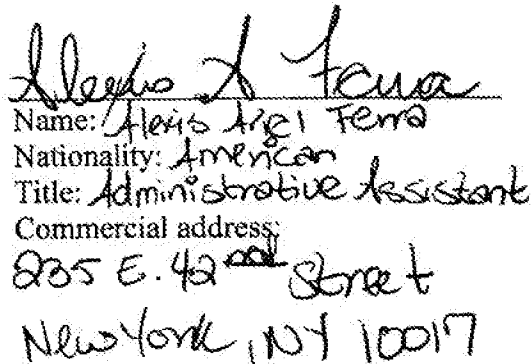 Alexis A Ferra
Name: Alexis Angel Ferra
Nationality: American
Title: Administrative Assistant
Commercial address:
235 E. 42nd Street
New York, NY 10017